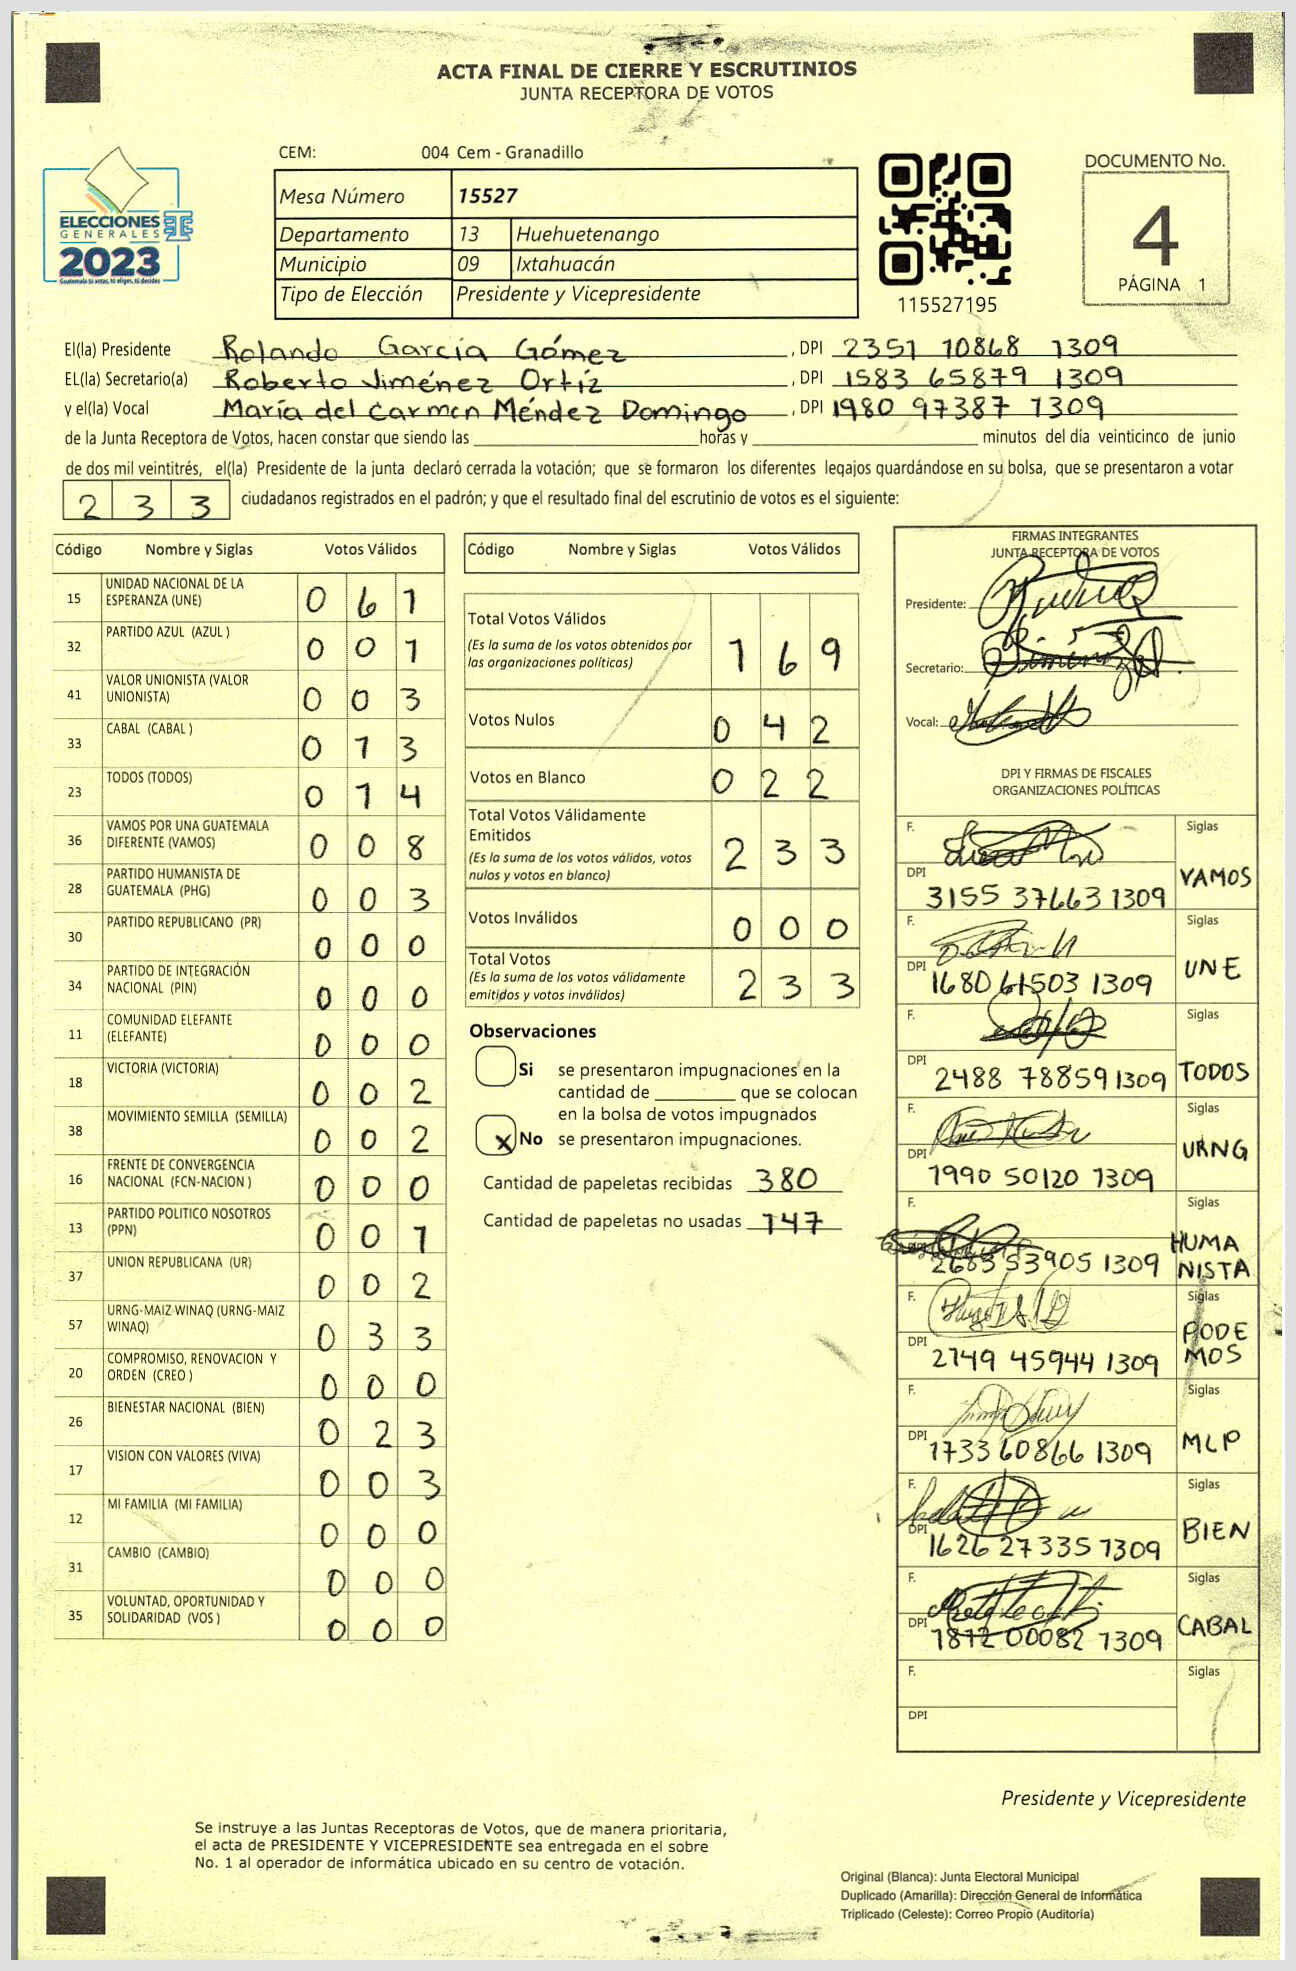 ACTA FINAL DE CIERRE Y ESCRUTINIOS
JUNTA RECEPTORA DE VOTOS
CEM: 004 Cem - Granadillo
ELECCIONES
GENERALES
2023
Guatemala tú votas, tú eliges, tú decides
Mesa Número 15527
Departamento 13 Huehuetenango
Municipio 09 Ixtahuacán
Tipo de Elección Presidente y Vicepresidente
115527195
DOCUMENTO No.
4
PÁGINA 1
El(la) Presidente Rolando García Gómez, DPI 2351 10868 1309
EL(la) Secretario(a) Roberto Jiménez Ortíz, DPI 1583 65879 1309
y el(la) Vocal María del Carmen Méndez Domingo, DPI 1980 97387 1309
de la Junta Receptora de Votos, hacen constar que siendo las ____ horas y ____ minutos del día veinticinco de junio
de dos mil veintitrés, el(la) Presidente de la junta declaró cerrada la votación; que se formaron los diferentes legajos guardándose en su bolsa, que se presentaron a votar
2 3 3 ciudadanos registrados en el padrón; y que el resultado final del escrutinio de votos es el siguiente:
Código Nombre y Siglas Votos Válidos
15 UNIDAD NACIONAL DE LA ESPERANZA (UNE) 0 6 1
32 PARTIDO AZUL (AZUL ) 0 0 1
41 VALOR UNIONISTA (VALOR UNIONISTA) 0 0 3
33 CABAL (CABAL ) 0 1 3
23 TODOS (TODOS) 0 1 4
36 VAMOS POR UNA GUATEMALA DIFERENTE (VAMOS) 0 0 8
28 PARTIDO HUMANISTA DE GUATEMALA (PHG) 0 0 3
30 PARTIDO REPUBLICANO (PR) 0 0 0
34 PARTIDO DE INTEGRACIÓN NACIONAL (PIN) 0 0 0
11 COMUNIDAD ELEFANTE (ELEFANTE) 0 0 0
18 VICTORIA (VICTORIA) 0 0 2
38 MOVIMIENTO SEMILLA (SEMILLA) 0 0 2
16 FRENTE DE CONVERGENCIA NACIONAL (FCN-NACION ) 0 0 0
13 PARTIDO POLITICO NOSOTROS (PPN) 0 0 1
37 UNION REPUBLICANA (UR) 0 0 2
57 URNG-MAIZ WINAQ (URNG-MAIZ WINAQ) 0 3 3
20 COMPROMISO, RENOVACION Y ORDEN (CREO ) 0 0 0
26 BIENESTAR NACIONAL (BIEN) 0 2 3
17 VISION CON VALORES (VIVA) 0 0 3
12 MI FAMILIA (MI FAMILIA) 0 0 0
31 CAMBIO (CAMBIO) 0 0 0
35 VOLUNTAD, OPORTUNIDAD Y SOLIDARIDAD (VOS ) 0 0 0
Código Nombre y Siglas Votos Válidos
Total Votos Válidos
(Es la suma de los votos obtenidos por
las organizaciones políticas) 1 6 9
Votos Nulos 0 4 2
Votos en Blanco 0 2 2
Total Votos Válidamente
Emitidos
(Es la suma de los votos válidos, votos
nulos y votos en blanco) 2 3 3
Votos Inválidos 0 0 0
Total Votos
(Es la suma de los votos válidamente
emitidos y votos inválidos) 2 3 3
Observaciones
Si se presentaron impugnaciones en la
cantidad de ____ que se colocan
en la bolsa de votos impugnados
x No se presentaron impugnaciones.
Cantidad de papeletas recibidas 380
Cantidad de papeletas no usadas 147
FIRMAS INTEGRANTES
JUNTA RECEPTORA DE VOTOS
Presidente:
Secretario:
Vocal:
DPI Y FIRMAS DE FISCALES
ORGANIZACIONES POLÍTICAS
F. Siglas
DPI 3155 37663 1309 VAMOS
F. Siglas
DPI 1680 61503 1309 UNE
F. Siglas
DPI 2488 78859 1309 TODOS
F. Siglas
DPI 1990 50120 1309 URNG
F. Siglas
2683 53905 1309 HUMA
NISTA
F. Siglas
DPI 2749 45944 1309 PODE
MOS
F. Siglas
DPI 1733 60866 1309 MLP
F. Siglas
DPI 1626 27335 1309 BIEN
F. Siglas
DPI 1872 00082 1309 CABAL
F. Siglas
DPI
Presidente y Vicepresidente
Se instruye a las Juntas Receptoras de Votos, que de manera prioritaria,
el acta de PRESIDENTE Y VICEPRESIDENTE sea entregada en el sobre
No. 1 al operador de informática ubicado en su centro de votación.
Original (Blanca): Junta Electoral Municipal
Duplicado (Amarilla): Dirección General de Informática
Triplicado (Celeste): Correo Propio (Auditoría)